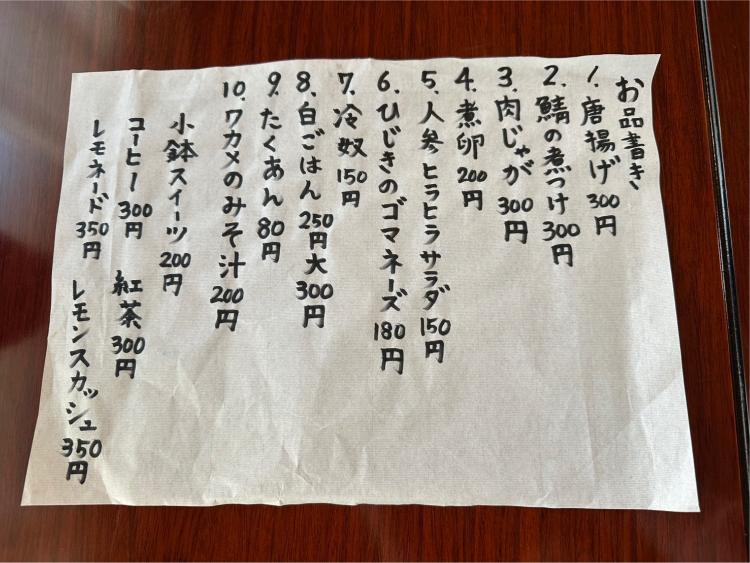 お品書き
1. 唐揚げ 300円
2. 鯖の煮つけ 300円
3. 肉じゃが 300円
4. 煮卵 200円
5. 人参ヒラヒラサラダ 150円
6. ひじきのゴマネーズ 180円
7. 冷奴 150円
8. 白ごはん 250円 大300円
9. たくあん 80円
10. ワカメのみそ汁 200円
小鉢スイーツ 200円
コーヒー 300円 紅茶 300円
レモネード 350円 レモンスカッシュ 350円